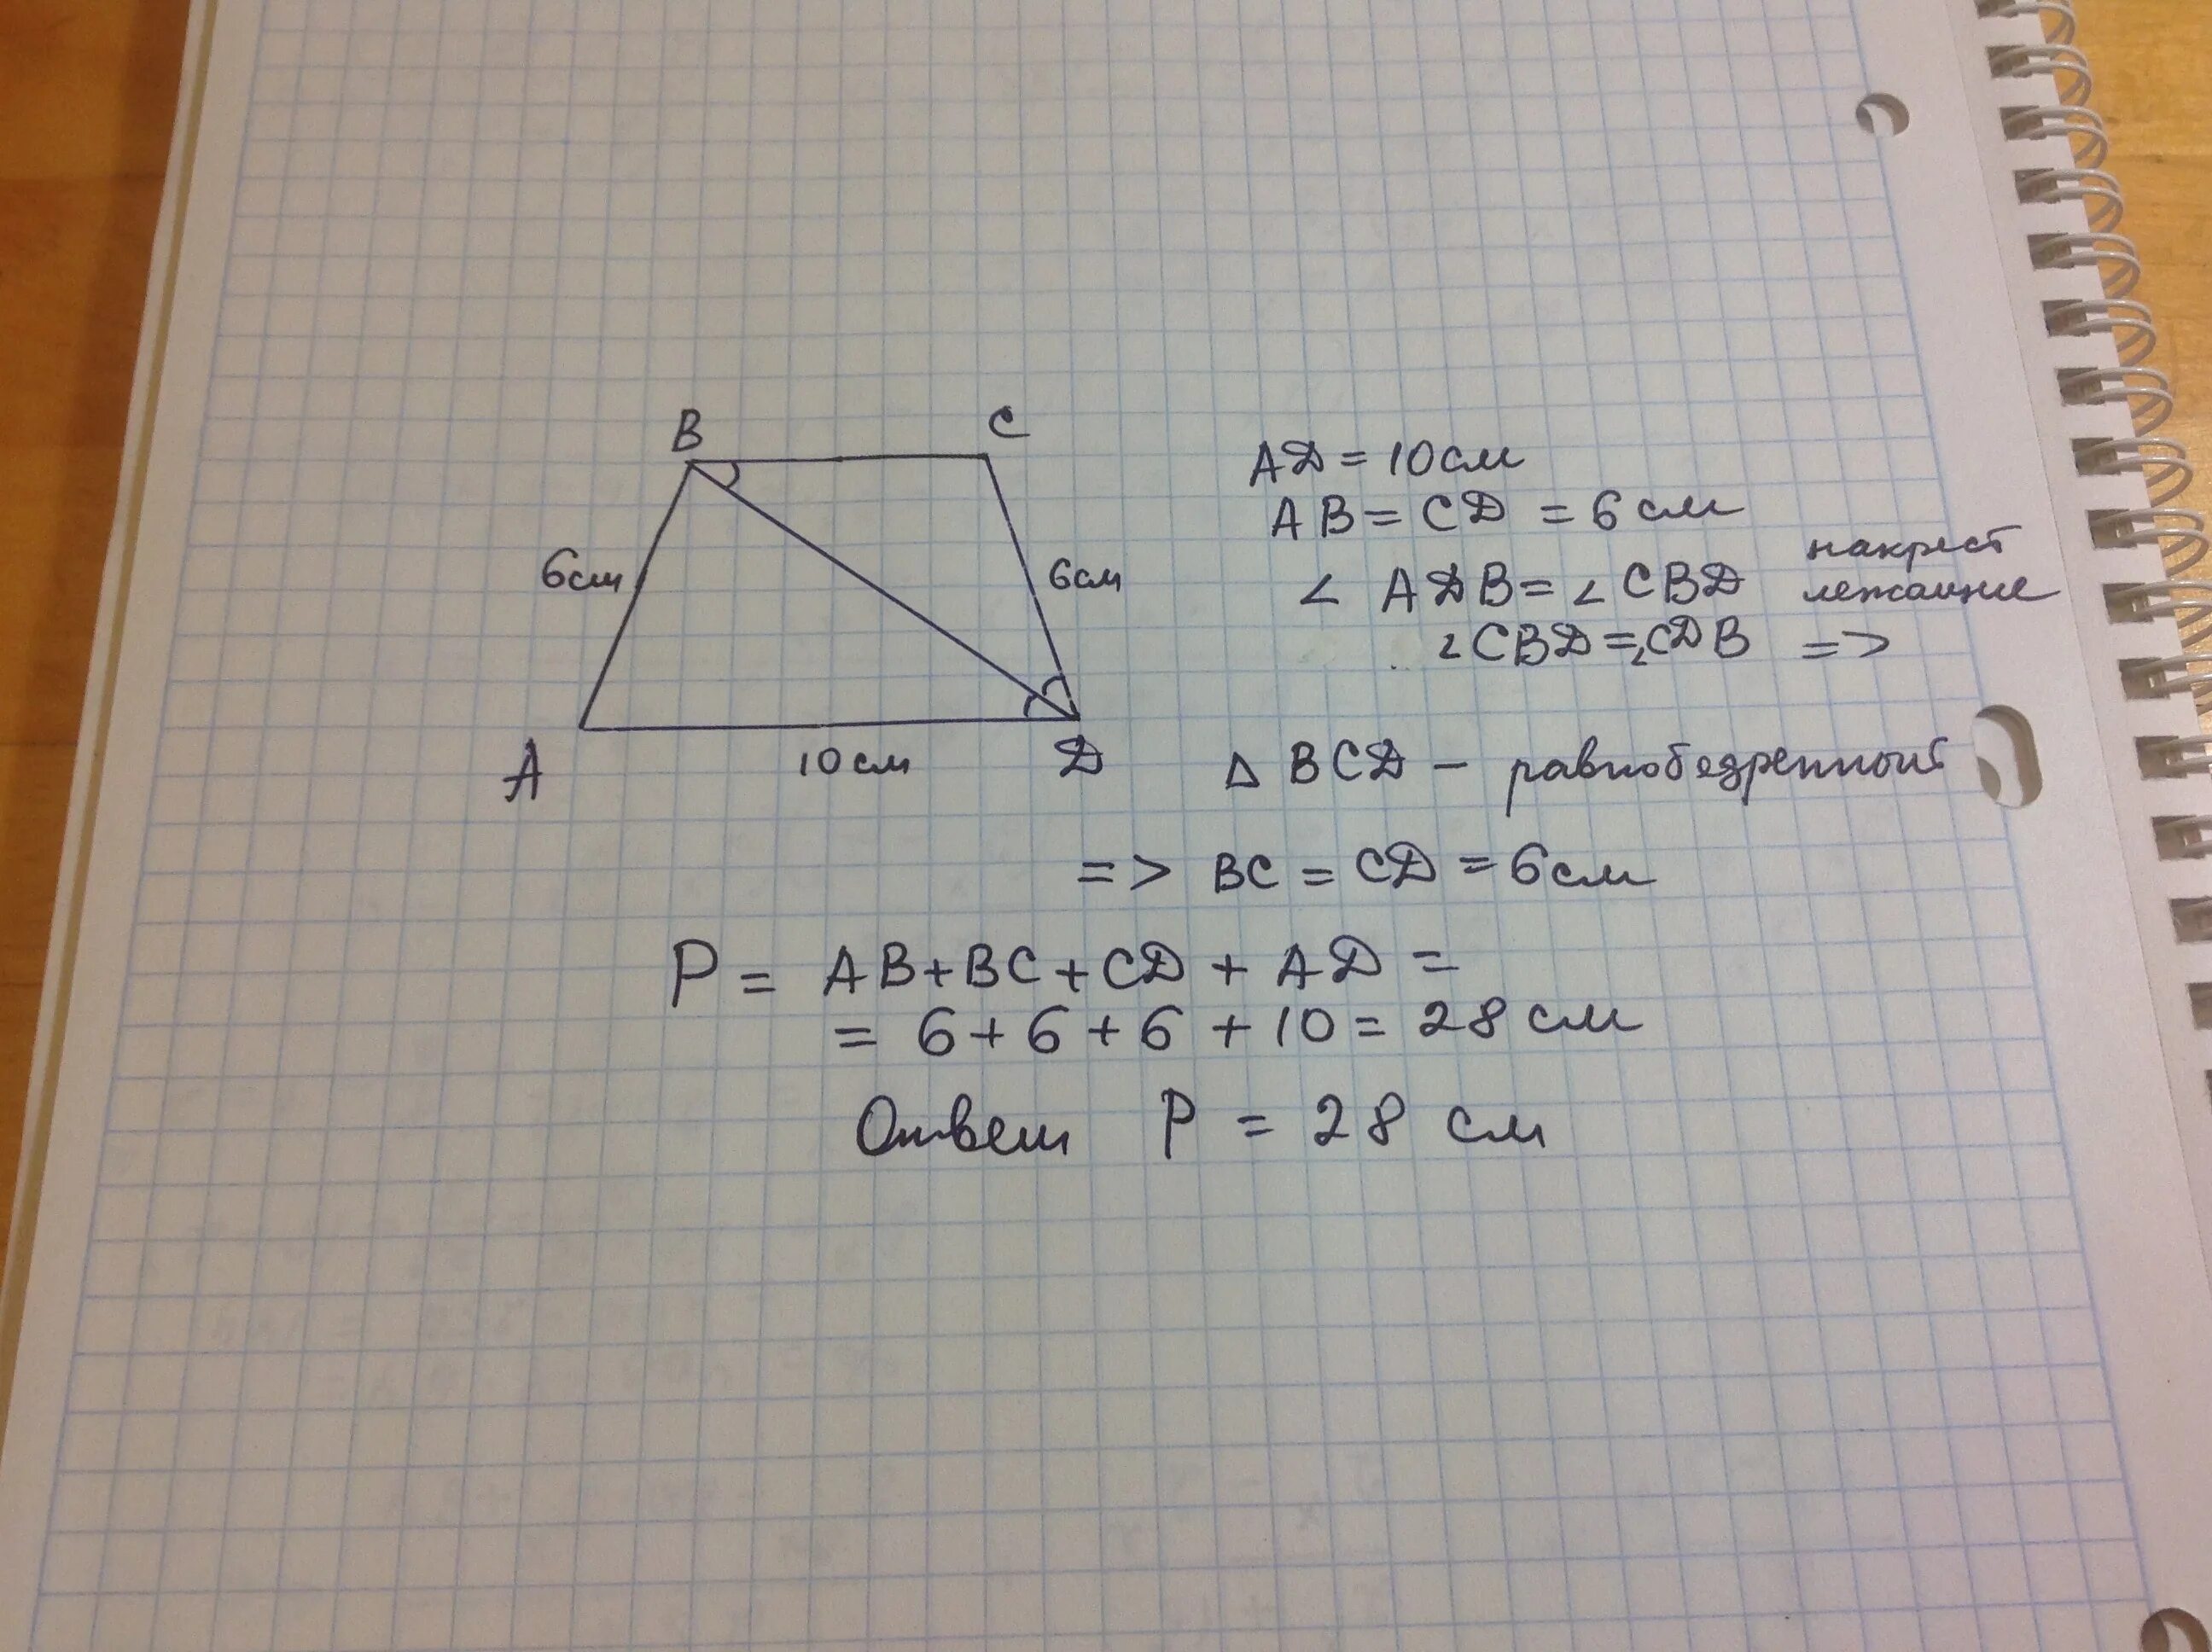 B C
6см 6см
A 10см D
AD = 10см
AB = CD = 6см
∠ ADB = ∠ CBD накрест лежащие
∠CBD = ∠CDB =>
Δ BCD – равнобедренный
=> BC = CD = 6см
P = AB + BC + CD + AD =
= 6 + 6 + 6 + 10 = 28 см
Ответ P = 28 см